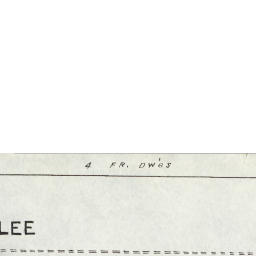 4 FR. DW'GS
LEE